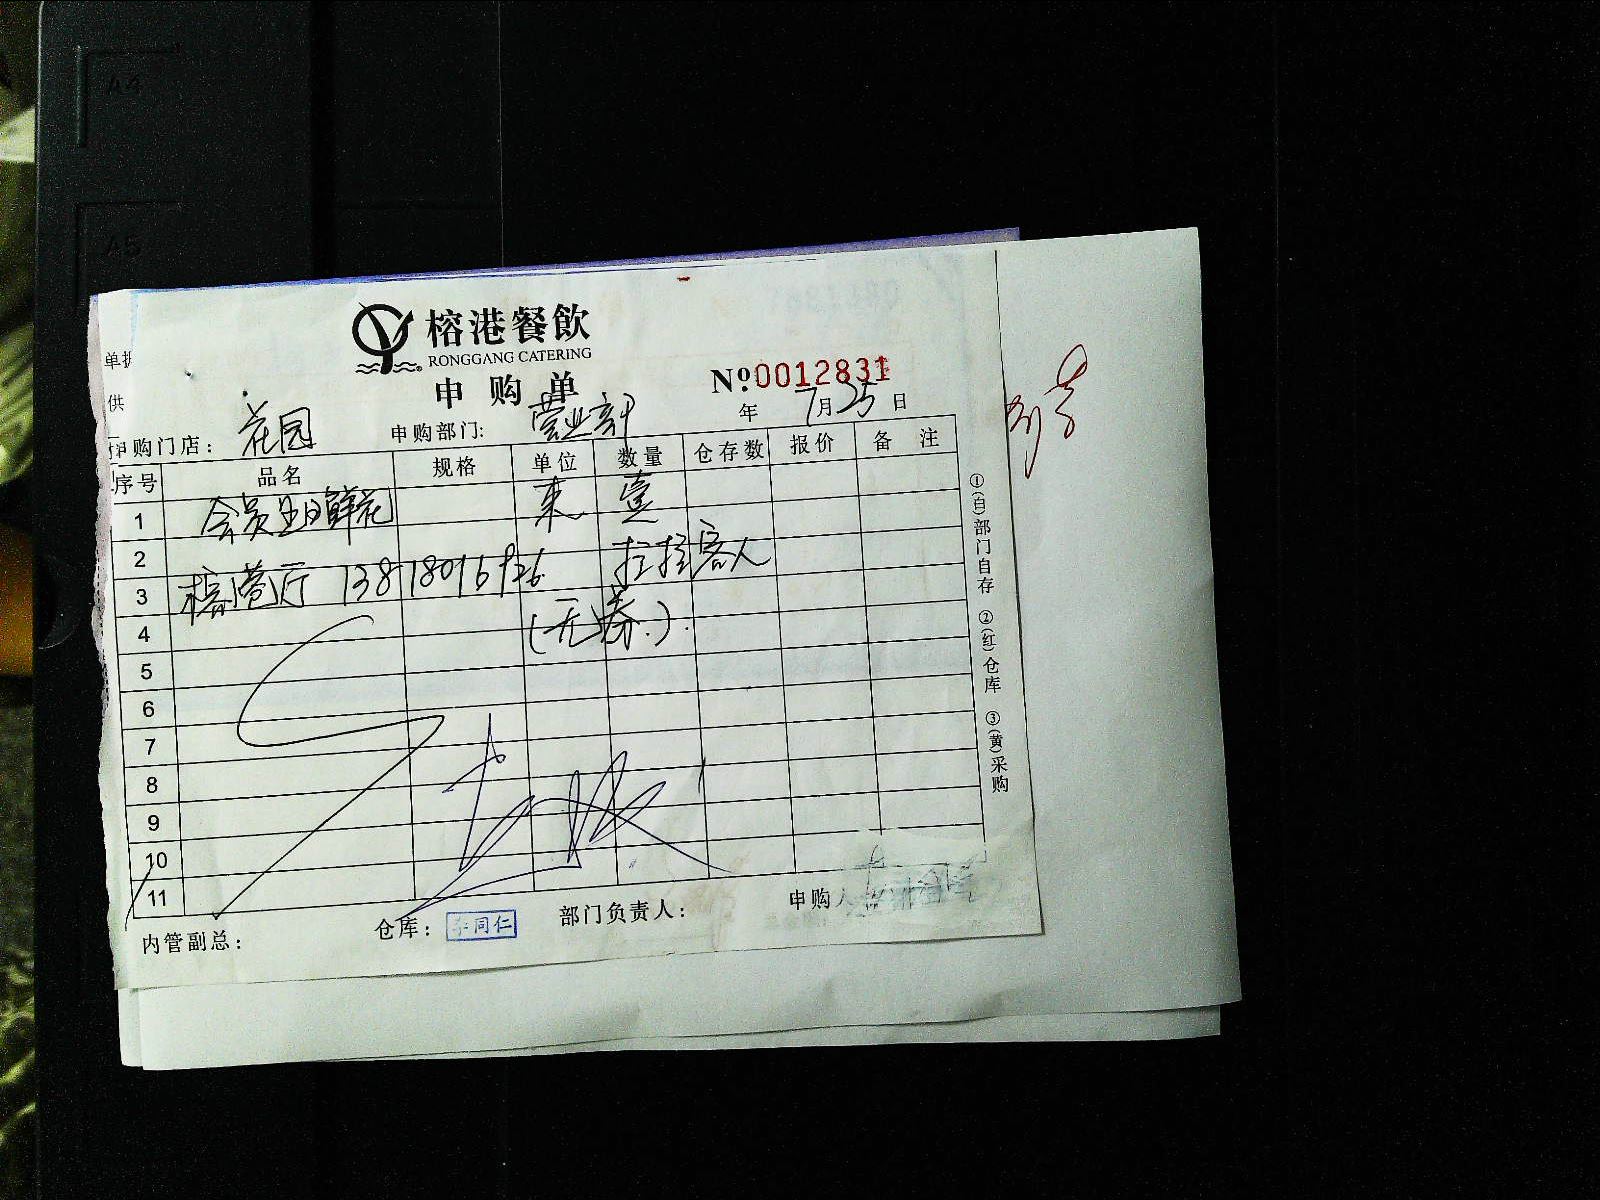 A4
A5
榕港餐飲
RONGGANG CATERING
申购单
Nº:0012831
年 7月25日
单据
供
申购门店：花园 申购部门：营业
序号 品名 规格 单位 数量 仓存数 报价 备注
1 会员生日鲜花 束 壹
2
3 榕港厅 拉拉客人
4 (无券.)
5
6
7
8
9
10
11
内管副总： 仓库：李同仁 部门负责人： 申购人
①(白)部门自存 ②(红)仓库 ③(黄)采购